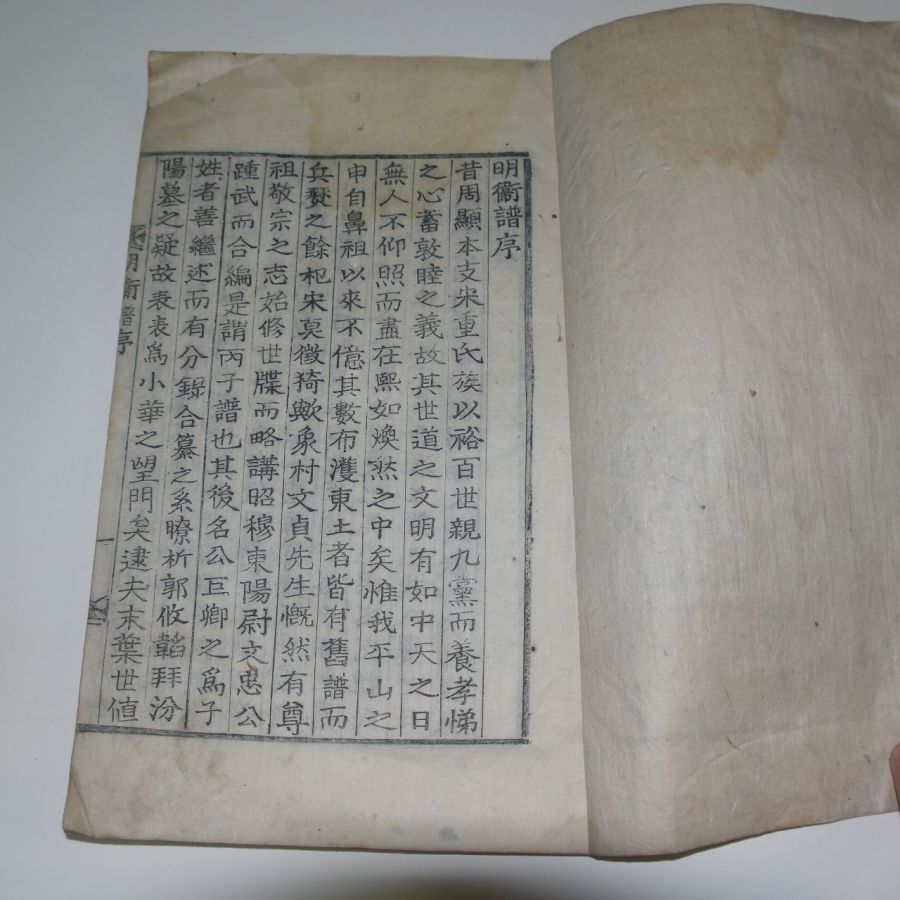 明衛譜序
昔周顯本支宋重氏族以裕百世親九黨而養孝悌
之心蓄敦睦之義故其世道之文明有如中天之日
無人不仰照而盡在熙如煥然之中矣惟我平山之
申自鼻祖以來不億其數布濩東土者皆有舊譜而
兵燹之餘杞宋莫徵猗歟象村文貞先生慨然有尊
祖敬宗之志始修世牒而略講昭穆東陽尉文忠公
踵武而合編是謂丙子譜也其後名公巨卿之爲子
姓者善繼述而有分錄合纂之系瞭析郭攸韜拜汾
陽墓之疑故表表爲小華之望門矣逮夫末葉世値
明衛譜序
一